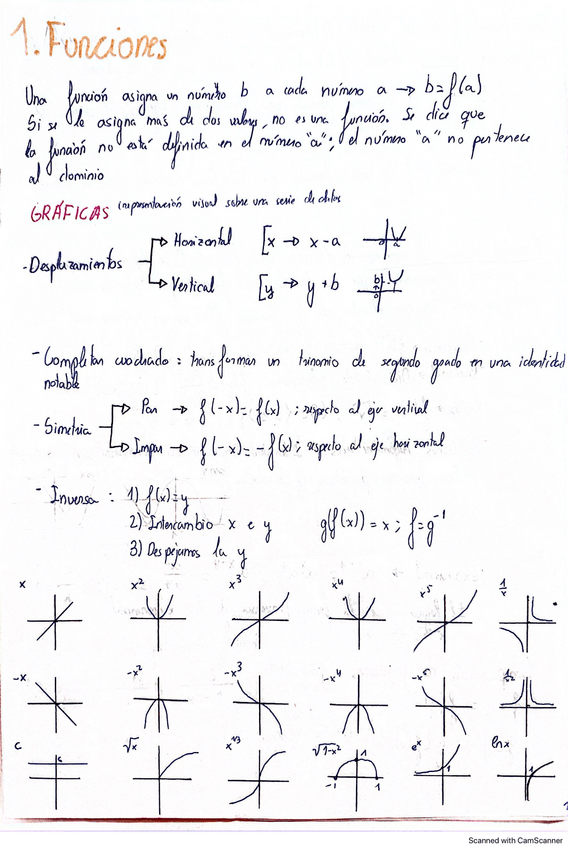 1. Funciones
Una función asigna un número b a cada número a → b = f(a)
Si se le asigna mas de dos valores, no es una función. Se dice que
la función no está definida en el número "a"; el número "a" no pertenece
al dominio
GRÁFICAS representación visual sobre una serie de datos
- Desplazamientos
Horizontal [x → x-a
a
Vertical [y → y+b
b
- Completar cuadrado : transformar un trinomio de segundo grado en una identidad
notable
- Simetría
Par → f(-x) = f(x) ; respecto al eje vertical
Impar → f(-x) = -f(x) ; respecto al eje horizontal
- Inversa : 1) f(x) = y
2) Intercambio x e y g(f(x)) = x ; f = g⁻¹
3) Despejamos la y
x x² x³ x⁴ x⁵ 1/x
-x -x² -x³ -x⁴ -x⁵
c √x x^1/3 √1-x² eˣ ln x
c 1 1 1
-1 1
Scanned with CamScanner